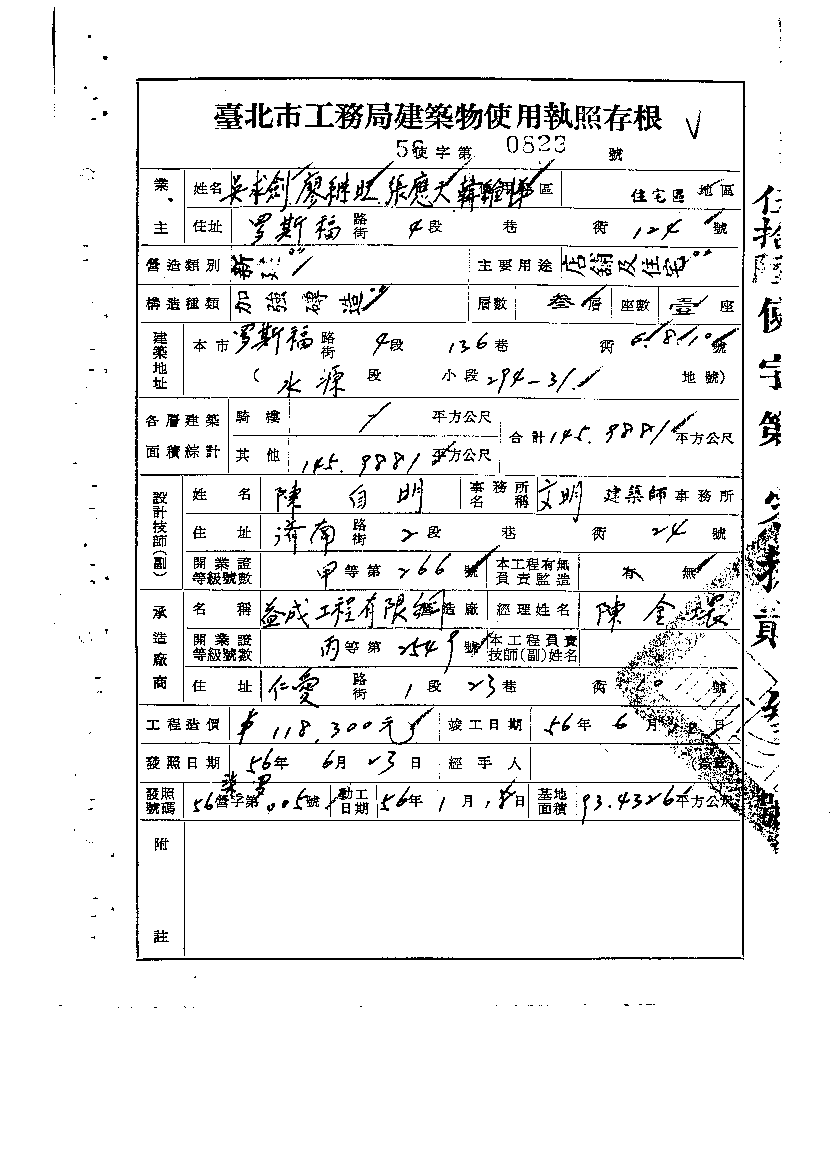 臺北市工務局建築物使用執照存根
56使字第 0823 號
業主 姓名 吳求劍 廖継旺 張應 區 住宅區 地區
住址 罗斯福 路街 4段 巷 衖 124 號
營造類別 新建 主要用途 店鋪及住宅
構造種類 加強磚造 層數 叁層 座數 壹座
建築地址 本市 罗斯福 路街 4段 136巷 衖 6.8.10 號
( 水源 段 小段 294-31 地號)
各層建築面積綜計 騎樓 平方公尺 合計 145.9881 平方公尺
其他 145.9881 平方公尺
設計技師(副) 姓名 陳自明 事務所名稱 文明 建築師事務所
住址 済南 路街 2段 巷 衖 24 號
開業證等級號數 甲等第 266 號 本工程有無負責監造 有 無
承造廠商 名稱 益成工程有限 營造廠 經理姓名 陳金環
開業證等級號數 丙等第 2549 號 本工程負責技師(副)姓名
住址 仁愛 路街 1段 23巷 衖 10 號
工程造價 118,300元 竣工日期 56年 6月 日
發照日期 56年 6月 23日 經手人
發照號碼 56營字第 005號 動工日期 56年 1月 18日 基地面積 93.4326 平方公尺
附註
伍拾陸使字第